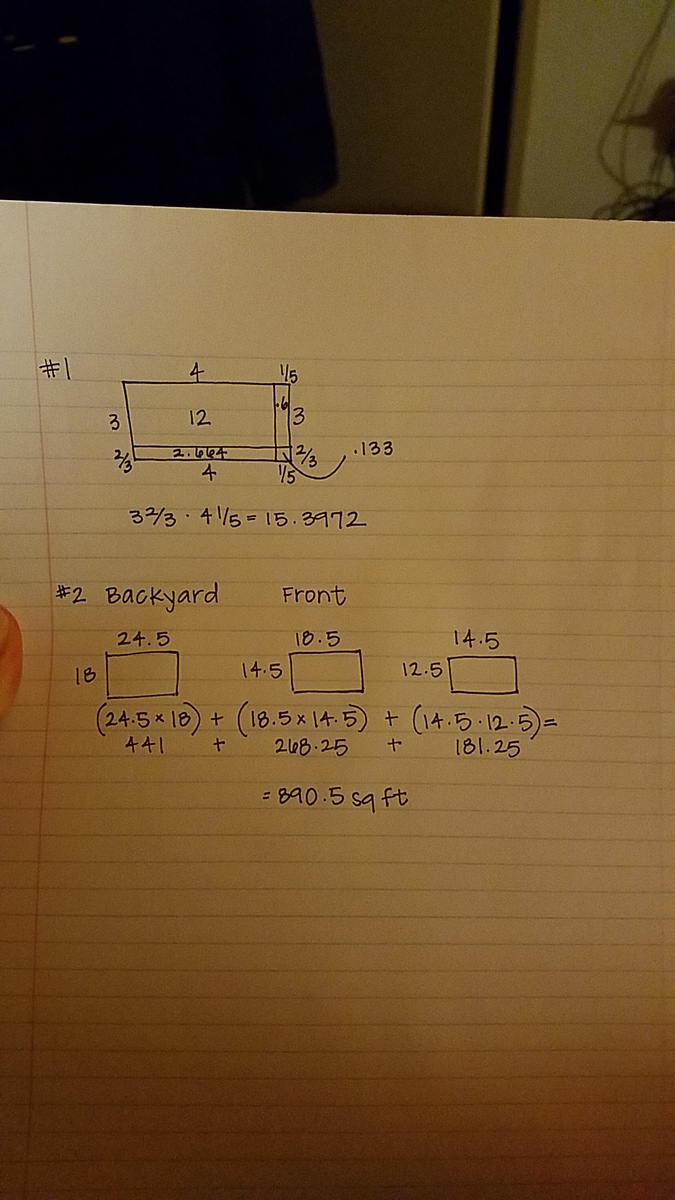 #1
4 1/5
3 12 .6 3
2/3 2.664 2/3 .133
4 1/5
3 2/3 · 4 1/5 = 15.3972
#2 Backyard Front
24.5 18.5 14.5
18 14.5 12.5
(24.5 × 18) + (18.5 × 14.5) + (14.5 · 12.5) =
441 + 268.25 + 181.25
= 890.5 sq ft